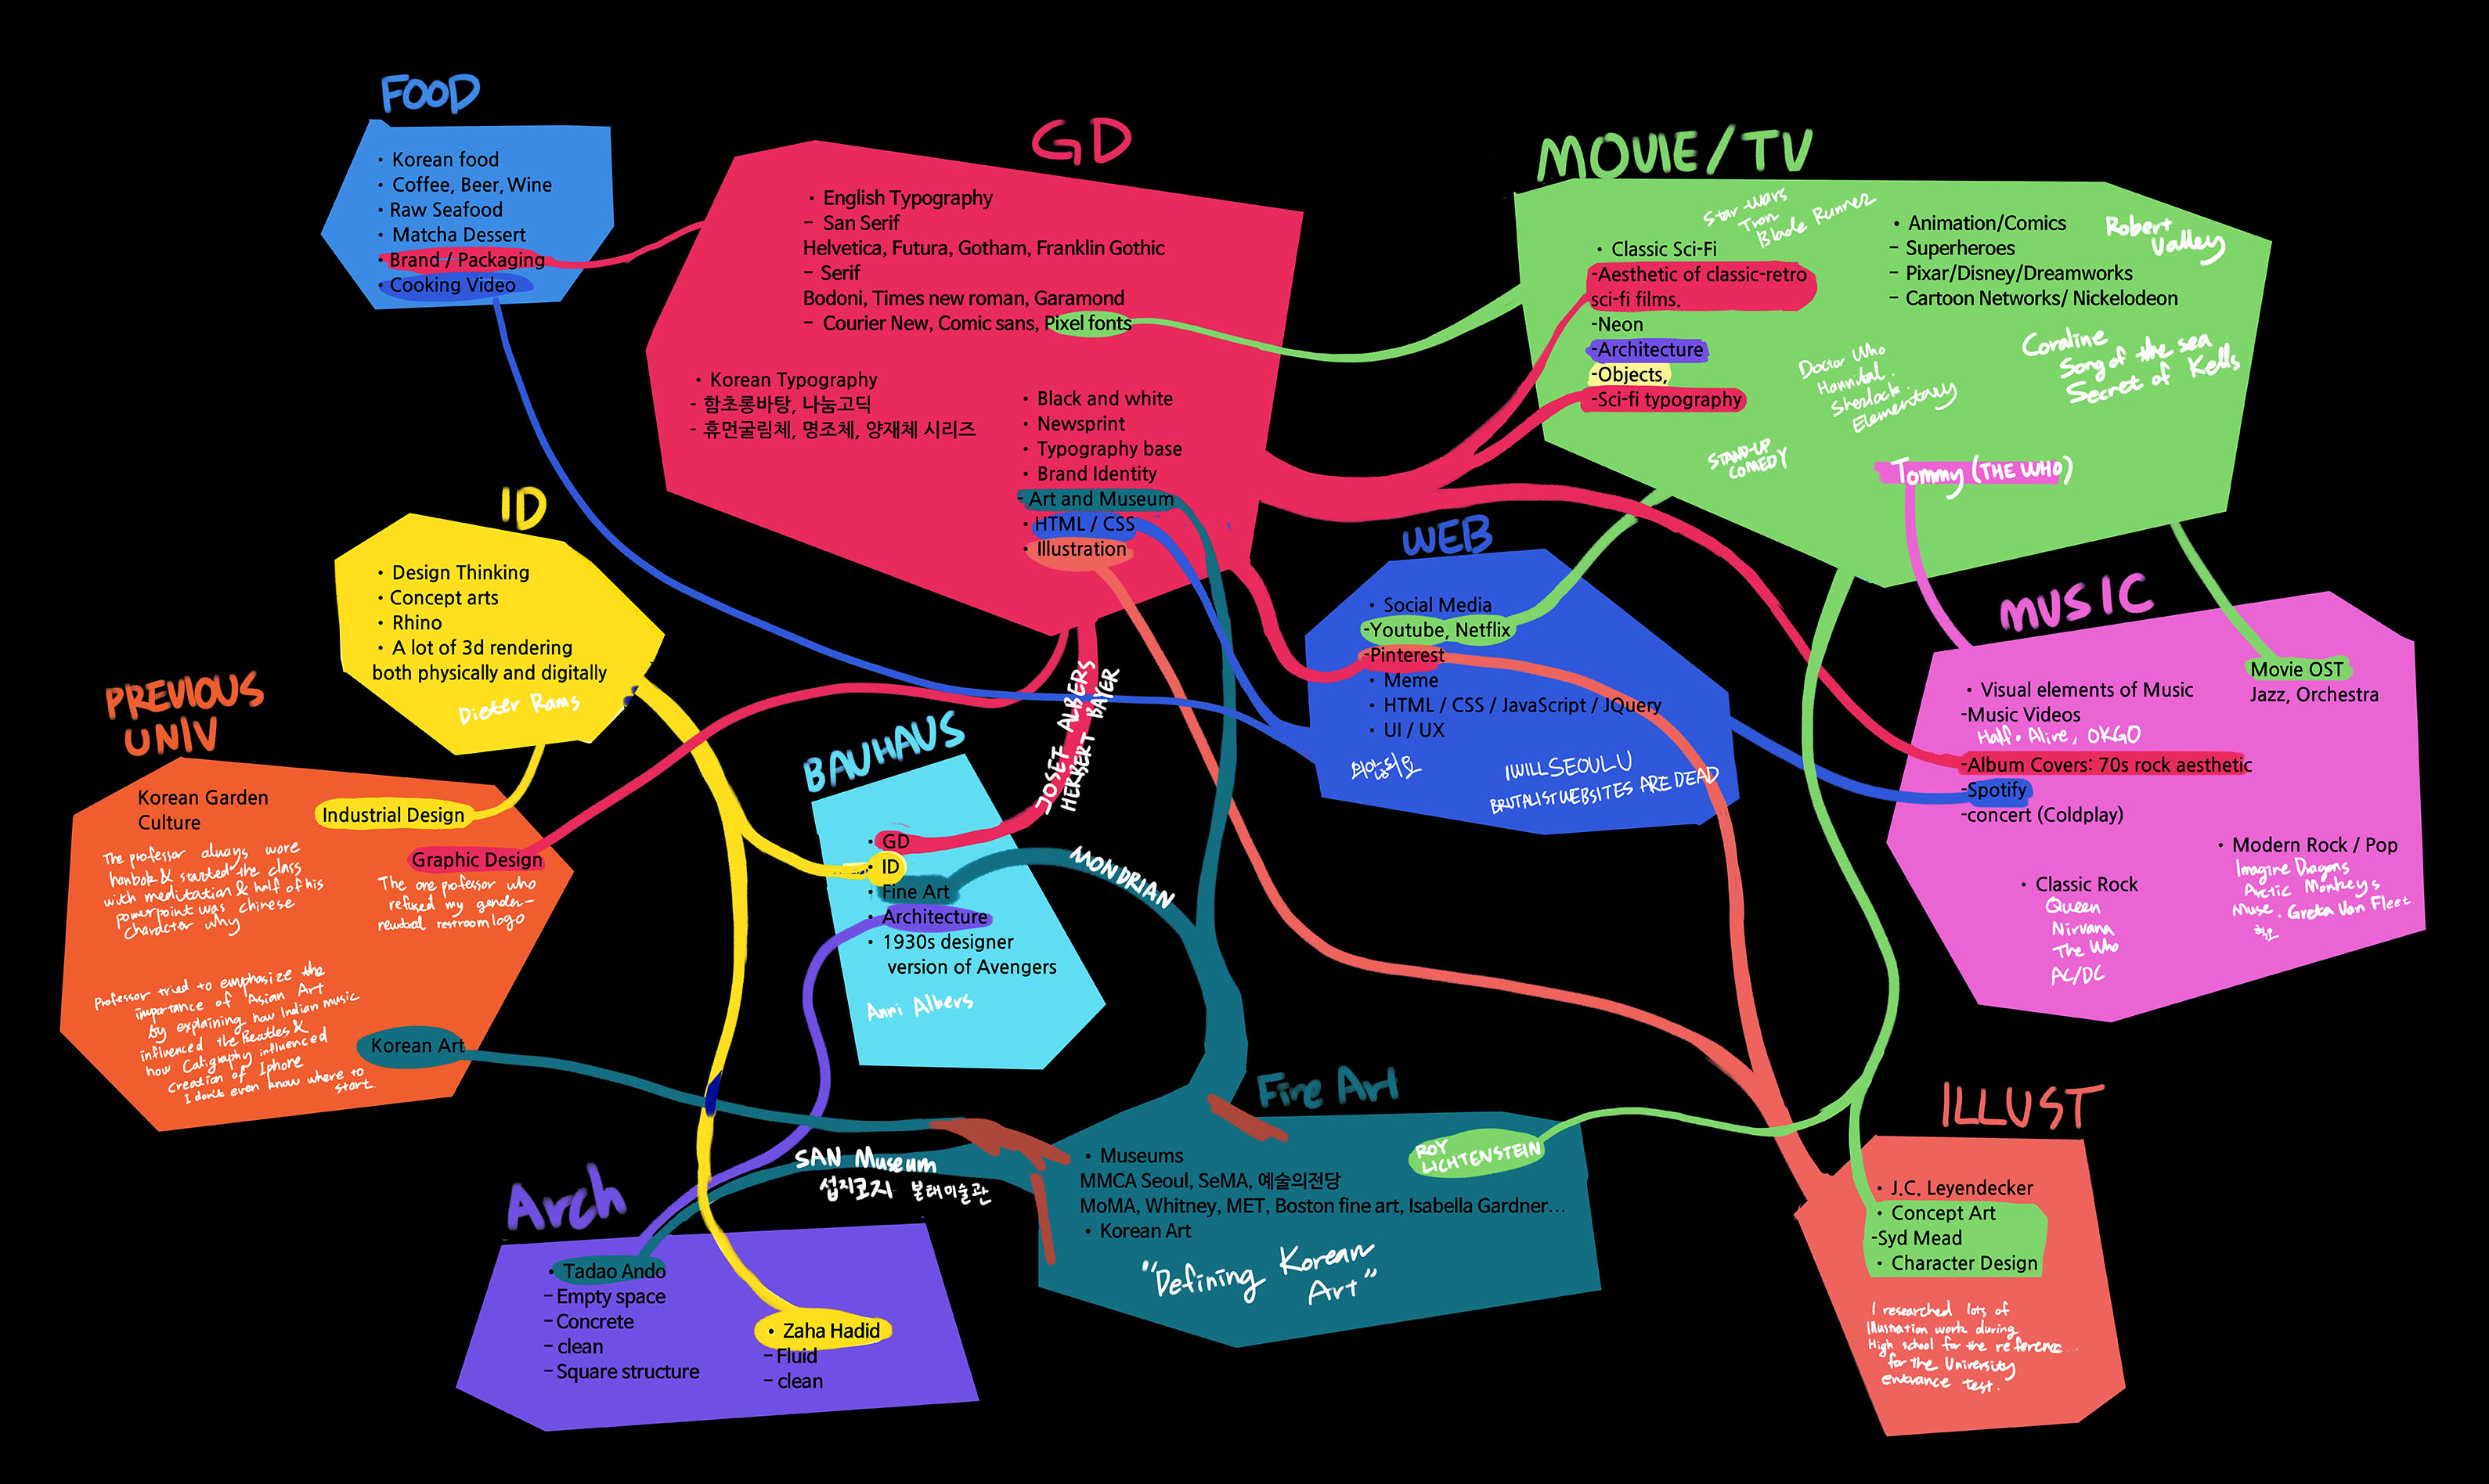 FOOD
• Korean food
• Coffee, Beer, Wine
• Raw Seafood
• Matcha Dessert
• Brand / Packaging
• Cooking Video
GD
• English Typography
– San Serif
Helvetica, Futura, Gotham, Franklin Gothic
– Serif
Bodoni, Times new roman, Garamond
– Courier New, Comic sans, Pixel fonts
• Korean Typography
- 함초롱바탕, 나눔고딕
- 휴먼굴림체, 명조체, 양재체 시리즈
• Black and white
• Newsprint
• Typography base
• Brand Identity
- Art and Museum
• HTML / CSS
• Illustration
MOVIE/TV
Star-wars
Tron
Blade Runner
• Classic Sci-Fi
-Aesthetic of classic-retro
sci-fi films.
-Neon
-Architecture
-Objects,
-Sci-fi typography
• Animation/Comics
– Superheroes
– Pixar/Disney/Dreamworks
– Cartoon Networks/ Nickelodeon
Robert
Valley
Doctor Who
Hannibal.
Sherlock
Elementary
Coraline
Song of the sea
Secret of Kells
STAND-UP
COMEDY
Tommy (THE WHO)
ID
• Design Thinking
• Concept arts
• Rhino
• A lot of 3d rendering
both physically and digitally
Dieter Rams
WEB
• Social Media
-Youtube, Netflix
-Pinterest
• Meme
• HTML / CSS / JavaScript / JQuery
• UI / UX
IWILLSEOULU
BRUTALISTWEBSITES ARE DEAD
MUSIC
Movie OST
Jazz, Orchestra
• Visual elements of Music
-Music Videos
Half•Alive, OKGO
-Album Covers: 70s rock aesthetic
-Spotify
-concert (Coldplay)
• Modern Rock / Pop
Imagine Dragons
Arctic Monkeys
Muse. Greta Van Fleet.
혁오
• Classic Rock
Queen
Nirvana
The Who
AC/DC
PREVIOUS
UNIV
Korean Garden
Culture
The professor always wore
hanbok & started the class
with meditation & half of his
powerpoint was chinese
character why
Industrial Design
Graphic Design
The one professor who
refused my gender-
neutral restroom logo
Professor tried to emphasize the
importance of Asian Art
by explaining how Indian music
influenced the Beatles &
how Caligraphy influenced
creation of Iphone
I don't even know where to
start.
Korean Art
BAUHAUS
JOSEF ALBERS
HERBERT BAYER
• GD
• ID
• Fine Art
• Architecture
• 1930s designer
version of Avengers
Anni Albers
MONDRIAN
Fine Art
• Museums
MMCA Seoul, SeMA, 예술의전당
MoMA, Whitney, MET, Boston fine art, Isabella Gardner...
• Korean Art
"Defining Korean
Art"
ROY
LICHTENSTEIN
SAN Museum
섭지코지 본태미술관
Arch
• Tadao Ando
– Empty space
– Concrete
– clean
– Square structure
• Zaha Hadid
– Fluid
– clean
ILLUST
• J.C. Leyendecker
• Concept Art
-Syd Mead
• Character Design
I researched lots of
Illustration work during
High school for the reference...
for the University
entrance test.